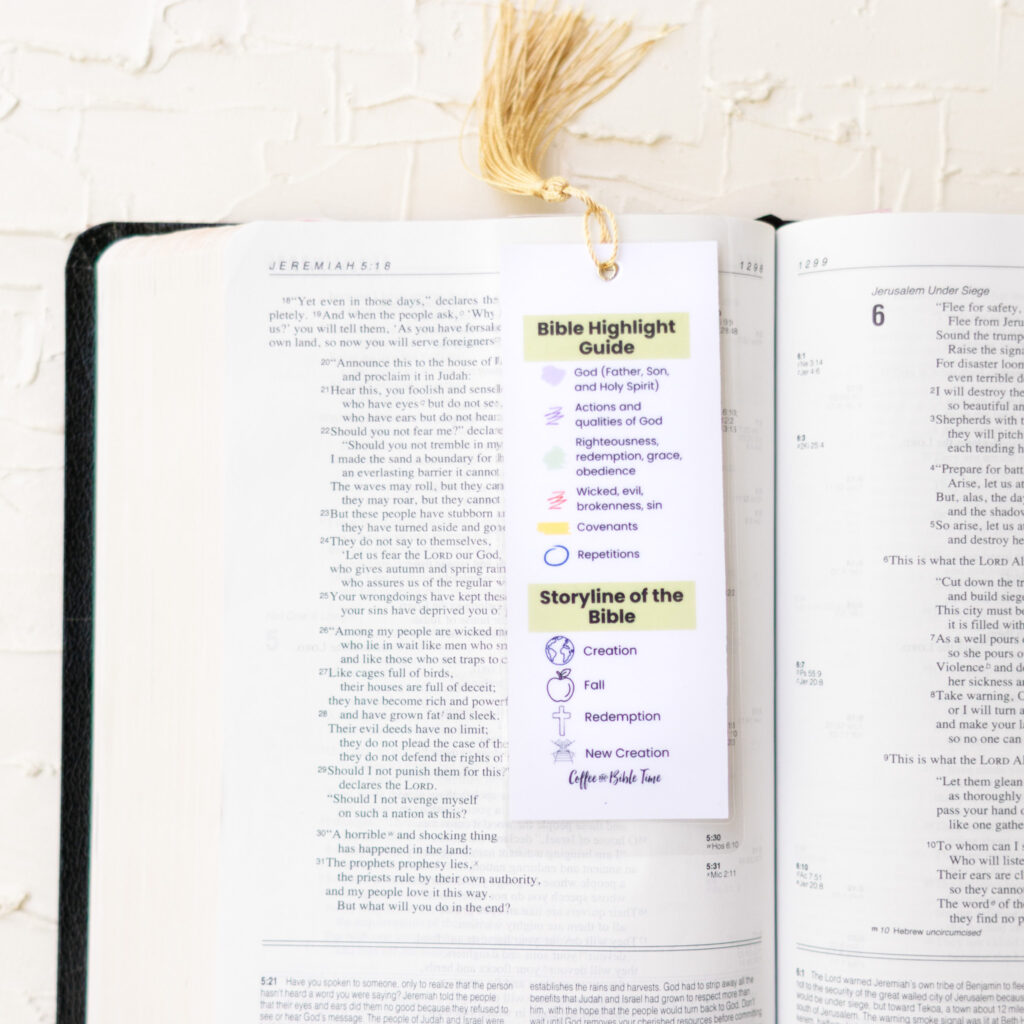 JEREMIAH 5:18
1298
18“Yet even in those days,” declares the
pletely. 19And when the people ask, ‘Why
us?’ you will tell them, ‘As you have forsak
own land, so now you will serve foreigners
20“Announce this to the house of
and proclaim it in Judah:
21Hear this, you foolish and
who have eyes but do not see,
who have ears but do not hear
22Should you not fear me?”
“Should you not tremble in my
I made the sand a boundary for
an everlasting barrier it cannot
The waves may roll, but they can
they may roar, but they cannot
23But these people have stubborn
they have turned aside and gone
24They do not say to themselves,
‘Let us fear the LORD our God,
who gives autumn and spring
who assures us of the regular
25Your wrongdoings have kept these
your sins have deprived you of
26“Among my people are wicked
who lie in wait like men who
and like those who set traps to
27Like cages full of birds,
their houses are full of deceit;
they have become rich and powerf
28 and have grown fat and sleek.
Their evil deeds have no limit;
they do not plead the case of the
they do not defend the rights of
29Should I not punish them for this?”
declares the LORD.
“Should I not avenge myself
on such a nation as this?
30“A horrible and shocking thing
has happened in the land:
31The prophets prophesy lies,
the priests rule by their own authority,
and my people love it this way.
But what will you do in the end?
5:30
Hos 6:10
5:31
Mic 2:11
5:21 Have you spoken to someone, only to realize that the person
hasn't heard a word you were saying? Jeremiah told the people
that their eyes and ears did them no good because they refused to
see or hear God's message. The people of Judah and Israel were
establishes the rains and harvests. God had to strip away all the
benefits that Judah and Israel had grown to respect more than
him, with the hope that the people would turn back to God. Don't
wait until God removes your cherished resources before committing
Bible Highlight
Guide
God (Father, Son,
and Holy Spirit)
Actions and
qualities of God
Righteousness,
redemption, grace,
obedience
Wicked, evil,
brokenness, sin
Covenants
Repetitions
Storyline of the
Bible
Creation
Fall
Redemption
New Creation
Coffee and Bible Time
1299
Jerusalem Under Siege
6 “Flee for safety,
Flee from
Sound the
Raise the
For disaster
even terrible
2I will destroy the
so beautiful
3Shepherds with
they will pitch
each tending
4“Prepare for
Arise, let us
But, alas, the
and the
5So arise, let us
and destroy
6This is what the LORD
“Cut down the
and build
This city must be
it is filled with
7As a well pours
so she pours
Violence and
her sickness
8Take warning,
or I will turn
and make your
so no one can
9This is what the LORD
“Let them glean
as thoroughly
pass your hand
like one
10To whom can I
Who will
Their ears are
so they
The word of
they find no
m 10 Hebrew uncircumcised
6:1 The Lord warned Jeremiah's own tribe of Benjamin to flee
not to the security of the great walled city of Jerusalem because
would be under siege, but toward Tekoa, a town about 12
south of Jerusalem. The warning smoke signal was lit at